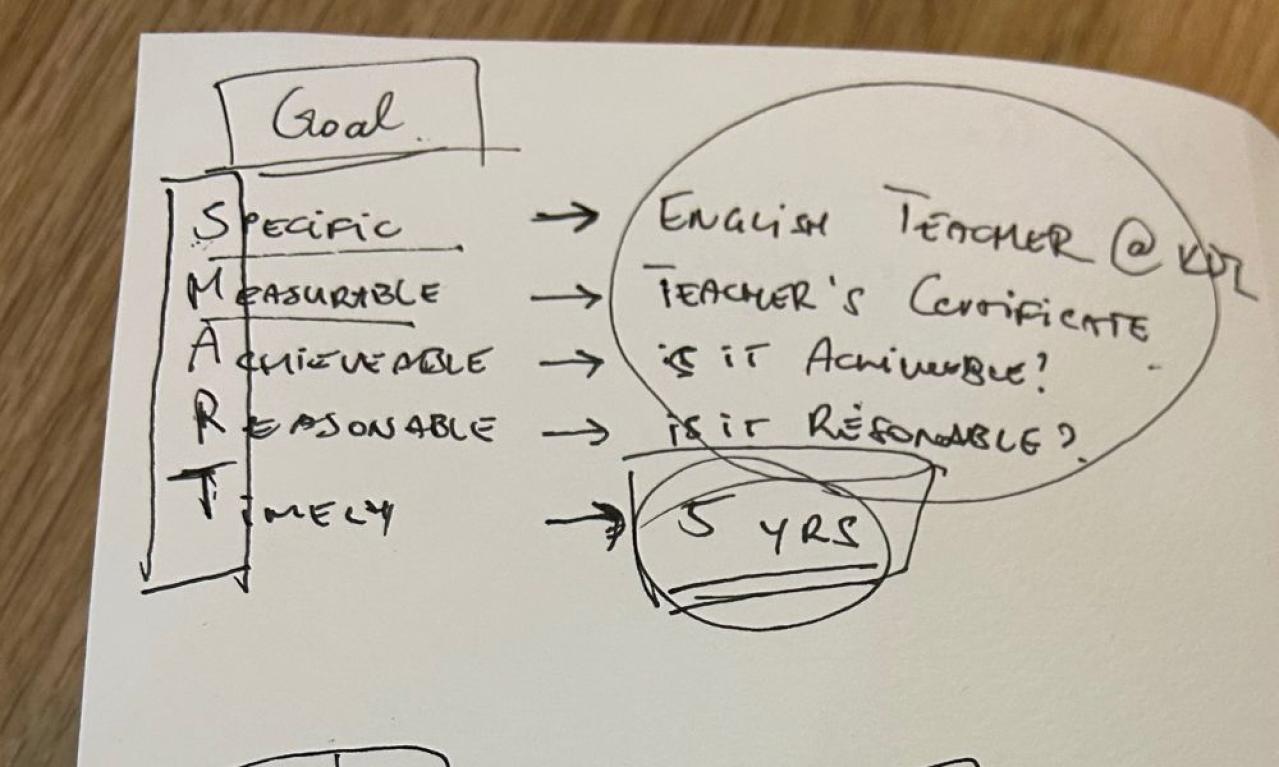 Goal
SPECIFIC → ENGLISH TEACHER @
MEASURABLE → TEACHER'S CERTIFICATE
ACHIEVEABLE → is iT AcHivable?
REASONABLE → is iT RESONABLE?
TIMELY → 5 YRS